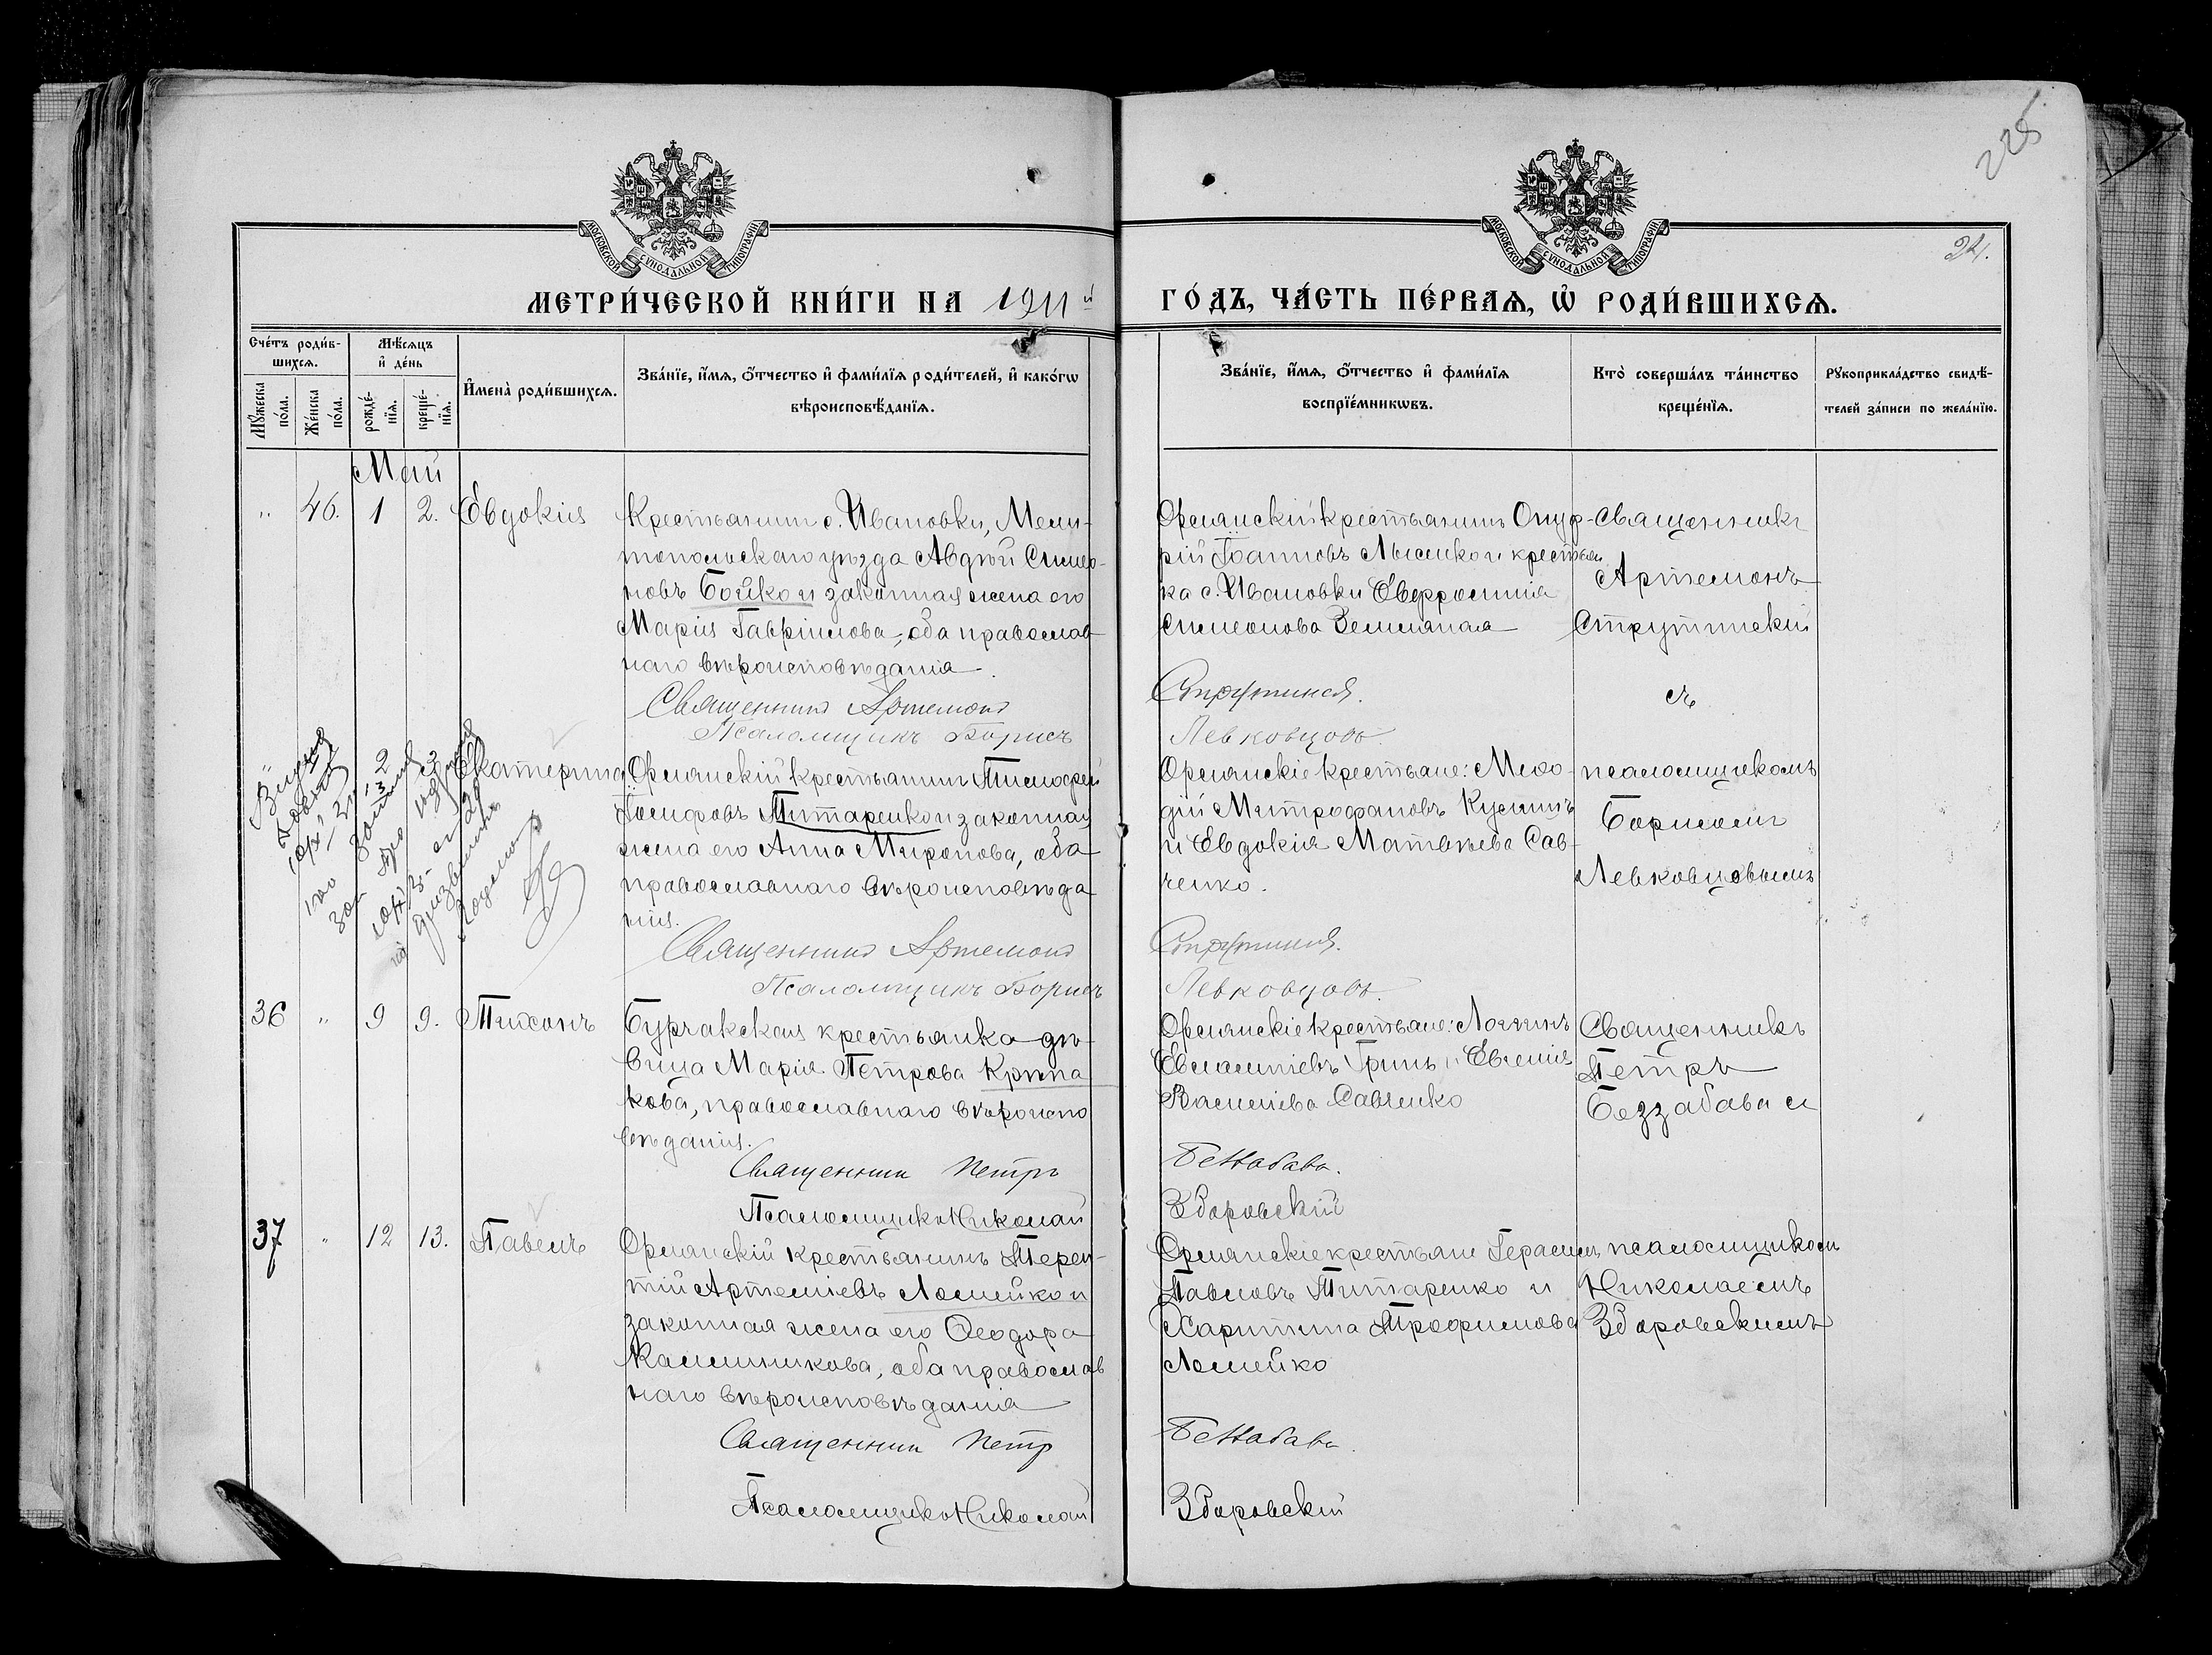 225
24.
МОСКОВСКОЙ СѴНОДАЛЬНОЙ ТИПОГРАФІИ
МОСКОВСКОЙ СѴНОДАЛЬНОЙ ТИПОГРАФІИ
МЕТРИ́ЧЕСКОЙ КНИ́ГИ НА 1911 й
ГО́ДЪ, ЧА́СТЬ ПЕ́РВАѦ, Ѡ҆ РОДИ́ВШИХСѦ.
Сче́тъ роди́в-
шихсѧ.
Мꙋ́жеска
по́ла.
Же́нска
по́ла.
Мѣ́сѧцъ
и҆ де́нь
рожде́-
нїѧ.
креще́-
нїѧ.
И҆мена̀ роди́вшихсѧ.
Зва́нїе, и҆́мѧ, ѻ҆́тчество и҆ фами́лїѧ роди́телей, и҆ како́гѡ
вѣроисповѣ́данїѧ.
Зва́нїе, и҆́мѧ, ѻ҆́тчество и҆ фами́лїѧ
воспрїе́мникѡвъ.
Кто̀ соверша́лъ та́инство
креще́нїѧ.
Рꙋкоприкла́дство свидѣ́-
телей за́писи по жела́нїю.
Май
" 46. 1 2. Евдокія
Крестьянинъ с. Ивановки, Мели-
топольскаго уѣзда Авдѣй Симео-
новъ Бойко и законная жена его
Марія Гавріилова, оба православ-
наго вѣроисповѣданія.
Священникъ Артемонъ
Псаломщикъ Борисъ
Орлянскій крестьянинъ Онуф-
рій Іоанновъ Лысенко и крестьян
ка с. Ивановки Евфросинія
Симеонова Земляная
Струтинскій.
Левковцовъ.
Священникъ
Артемонъ
Струтинскій
съ
2 3 Екатерина
Орлянскій крестьянинъ Тимофей
Іосифовъ Титаренко и законная
жена его Анна Миронова, оба
православнаго вѣроисповѣда
нія.
Священникъ Артемонъ
Псаломщикъ Борисъ
Орлянскіе крестьяне: Меѳо-
дій Митрофановъ Куликъ
и Евдокія Матвѣева Сав-
ченко.
Струтинскій.
Левковцовъ.
псаломщикомъ
Борисомъ
Левковцовымъ
36 " 9 9. Тихонъ
Бурчакская крестьянка дѣ-
вица Марія Петрова
кова, православнаго вѣроиспо
вѣданія.
Священникъ Петръ
Псаломщикъ Николай
Орлянскіе крестьяне: Логгинъ
Евлампіевъ Гринь и Евгенія
Васильева Савченко
Беззабава.
Здоровскій
Священникъ
Петръ
Беззабава съ
37 " 12 13. Павелъ
Орлянскій крестьянинъ Терен-
тій Артеміевъ Ломейко и
законная жена его Ѳеодора
Калинникова, оба православ
наго вѣроисповѣданія
Священникъ Петръ
Псаломщикъ Николай
Орлянскіе крестьяне Герасимъ
Павловъ Титаренко и
Харитина Трофимова
Ломейко
Беззабава.
Здоровскій
псаломщикомъ
Николаемъ
Здоровскимъ